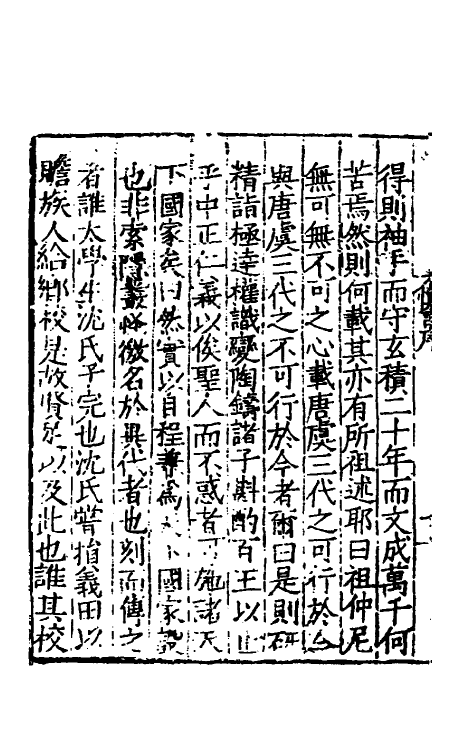 得則袖手而守玄積二十年而文成萬千何
苦焉然則何載其亦有所祖述耶曰祖仲尼
無可無不可之心載唐虞三代之可行於今
與唐虞三代之不可行於今者爾曰是則研
精詣極達權識變陶鑄諸子斟酌百王以止
乎中正仁義以俟聖人而不惑者可施諸天
下國家矣曰然實以自程業為天下國家
也非索隱叢怪徼名於異代者也刻而傳之
者誰太學生沈氏子完也沈氏嘗捐義田以
贍族人給鄉校是故賢於以及此也誰其校